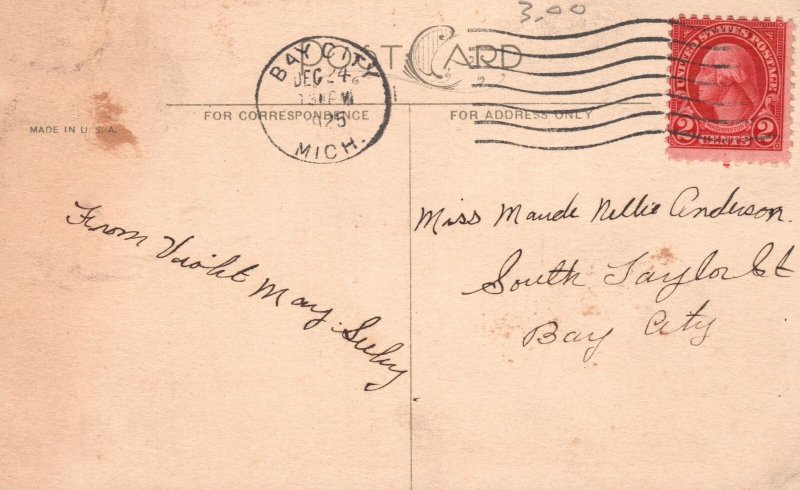 3.00
POST CARD
BAY CITY
DEC 24
1 30 PM
1925
MICH.
UNITED STATES POSTAGE
WASHINGTON
2 CENTS 2
FOR CORRESPONDENCE
FOR ADDRESS ONLY
MADE IN U. S. A.
From Violet May
Miss Maude Nellie Anderson.
South Taylor St
Bay City